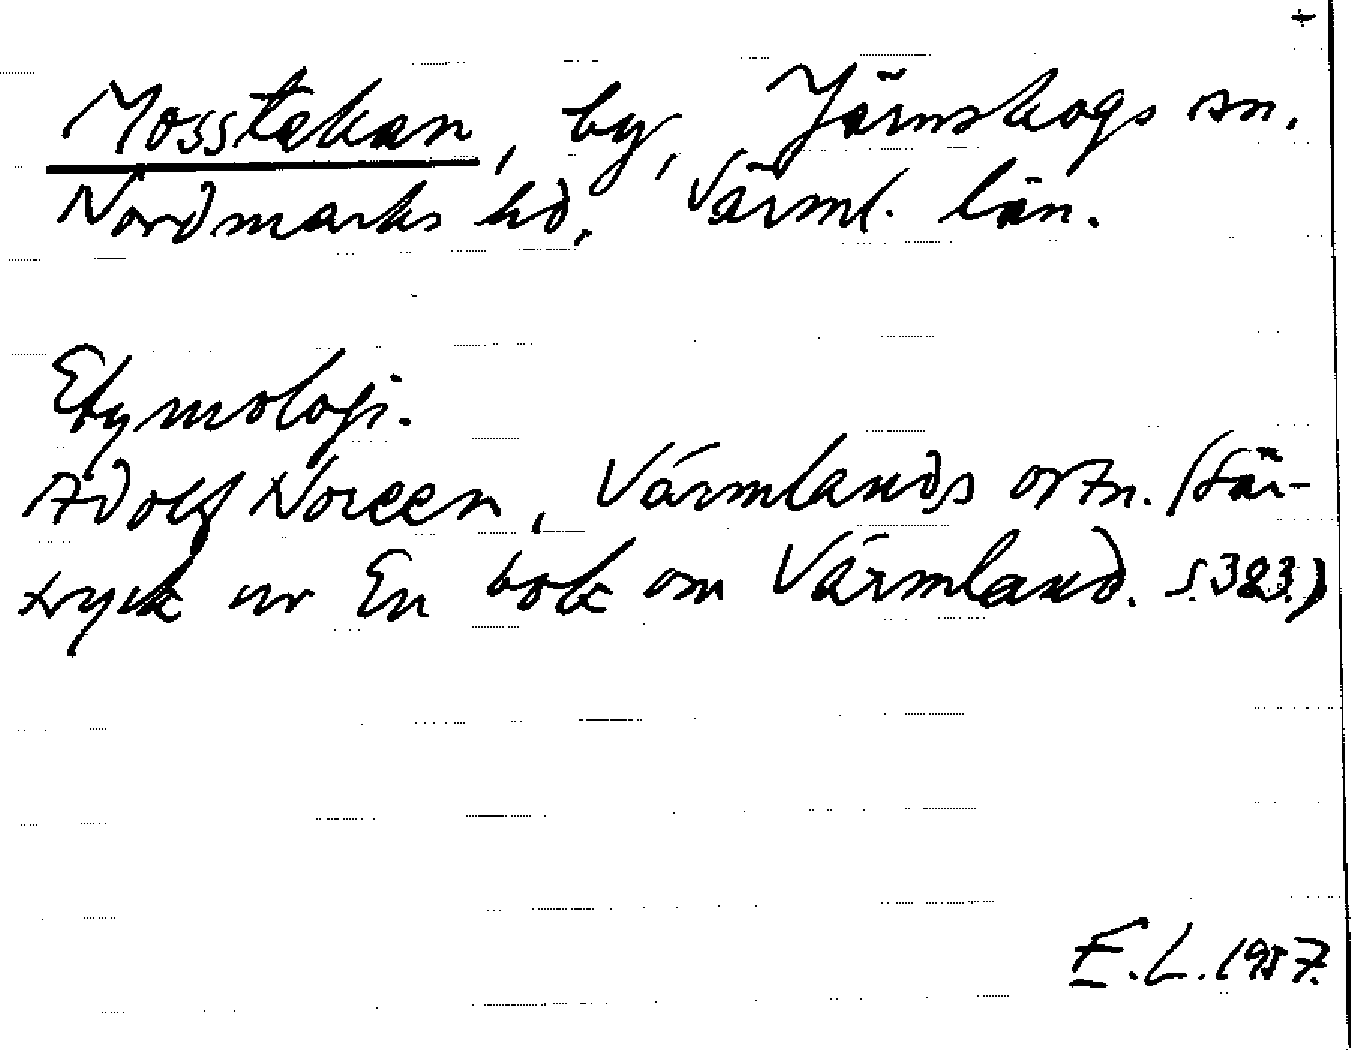 +
Mosstakan, by, Järnskogs sn.
Nordmarks hd, Värml. län.
Etymologi.
Adolf Noreen, Värmlands ortn. (Sär-
tryck ur En bok om Värmland. s. 383.)
E.L. 1957.